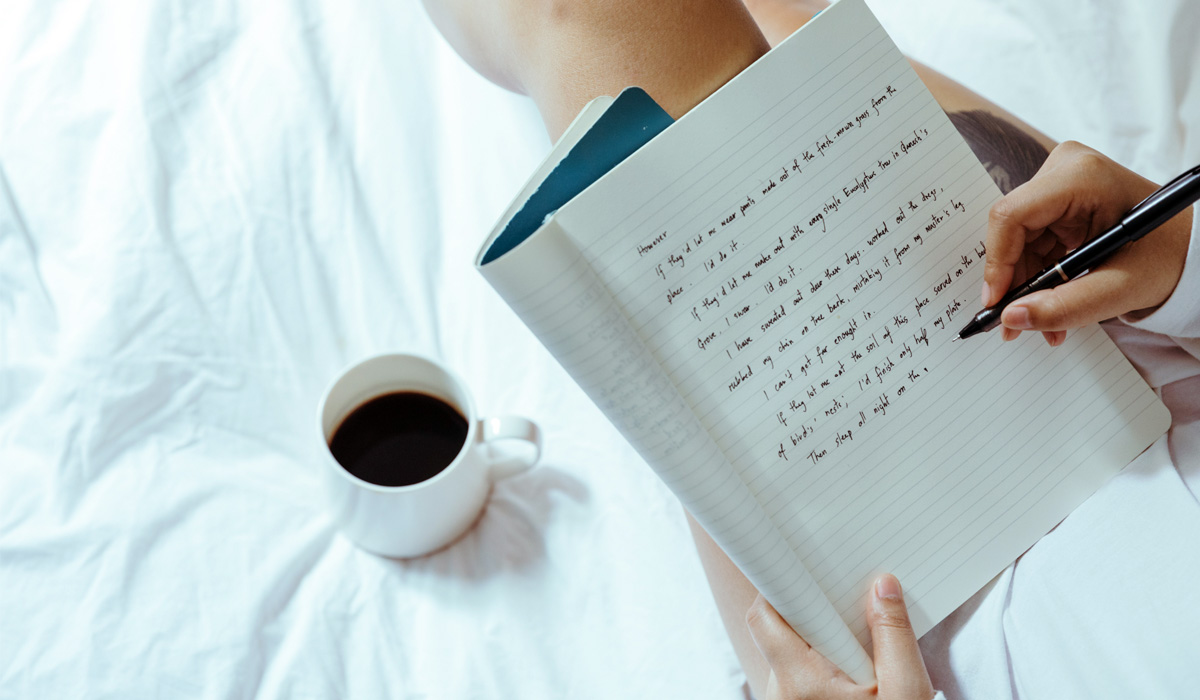 However
If they'd let me wear pants made out of the fresh-mown grass from the
place. I'd do it.
If they'd let me make out with every single Eucalyptus tree in Ganesh's
Grove, I swear. I'd do it.
I have sweated out dew these days, worked out the dregs,
rubbed my chin on tree bark, mistaking it from my master's leg
I can't get far enough in.
If they let me eat the soil of this place served on the bed
of bird's nests; I'd finish only half my plate.
Then sleep all night on the